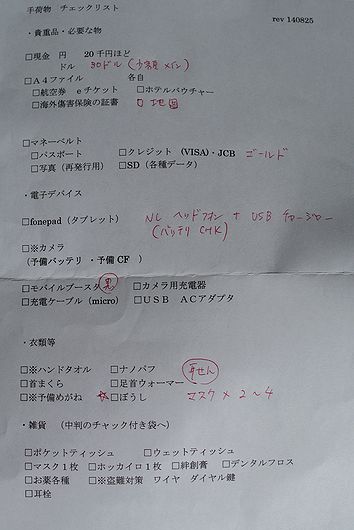 手荷物 チェックリスト
rev 140825
・貴重品・必要な物
□現金 円 20千円ほど
ドル 30ドル(少額メイン)
□A4ファイル 各自
□航空券 eチケット □ホテルバウチャー
□海外傷害保険の証書 □地図
□マネーベルト
□パスポート □クレジット(VISA)・JCB ゴールド
□写真(再発行用) □SD(各種データ)
・電子デバイス
□fonepad(タブレット) NC ヘッドフォン + USB チャージャー
(バッテリ CHK)
□※カメラ
(予備バッテリ ・予備CF )
□モバイルブースタ □カメラ用充電器
□充電ケーブル(micro) □USB ACアダプタ
・衣類等
□※ハンドタオル □ナノパフ 耳せん
□首まくら □足首ウォーマー
□※予備めがね ☆□ぼうし マスク×2〜4
・雑貨 (中判のチャック付き袋へ)
□ポケットティッシュ □ウェットティッシュ
□マスク1枚 □ホッカイロ1枚 □絆創膏 □デンタルフロス
□お薬各種 □※盗難対策 ワイヤ ダイヤル鍵
□耳栓